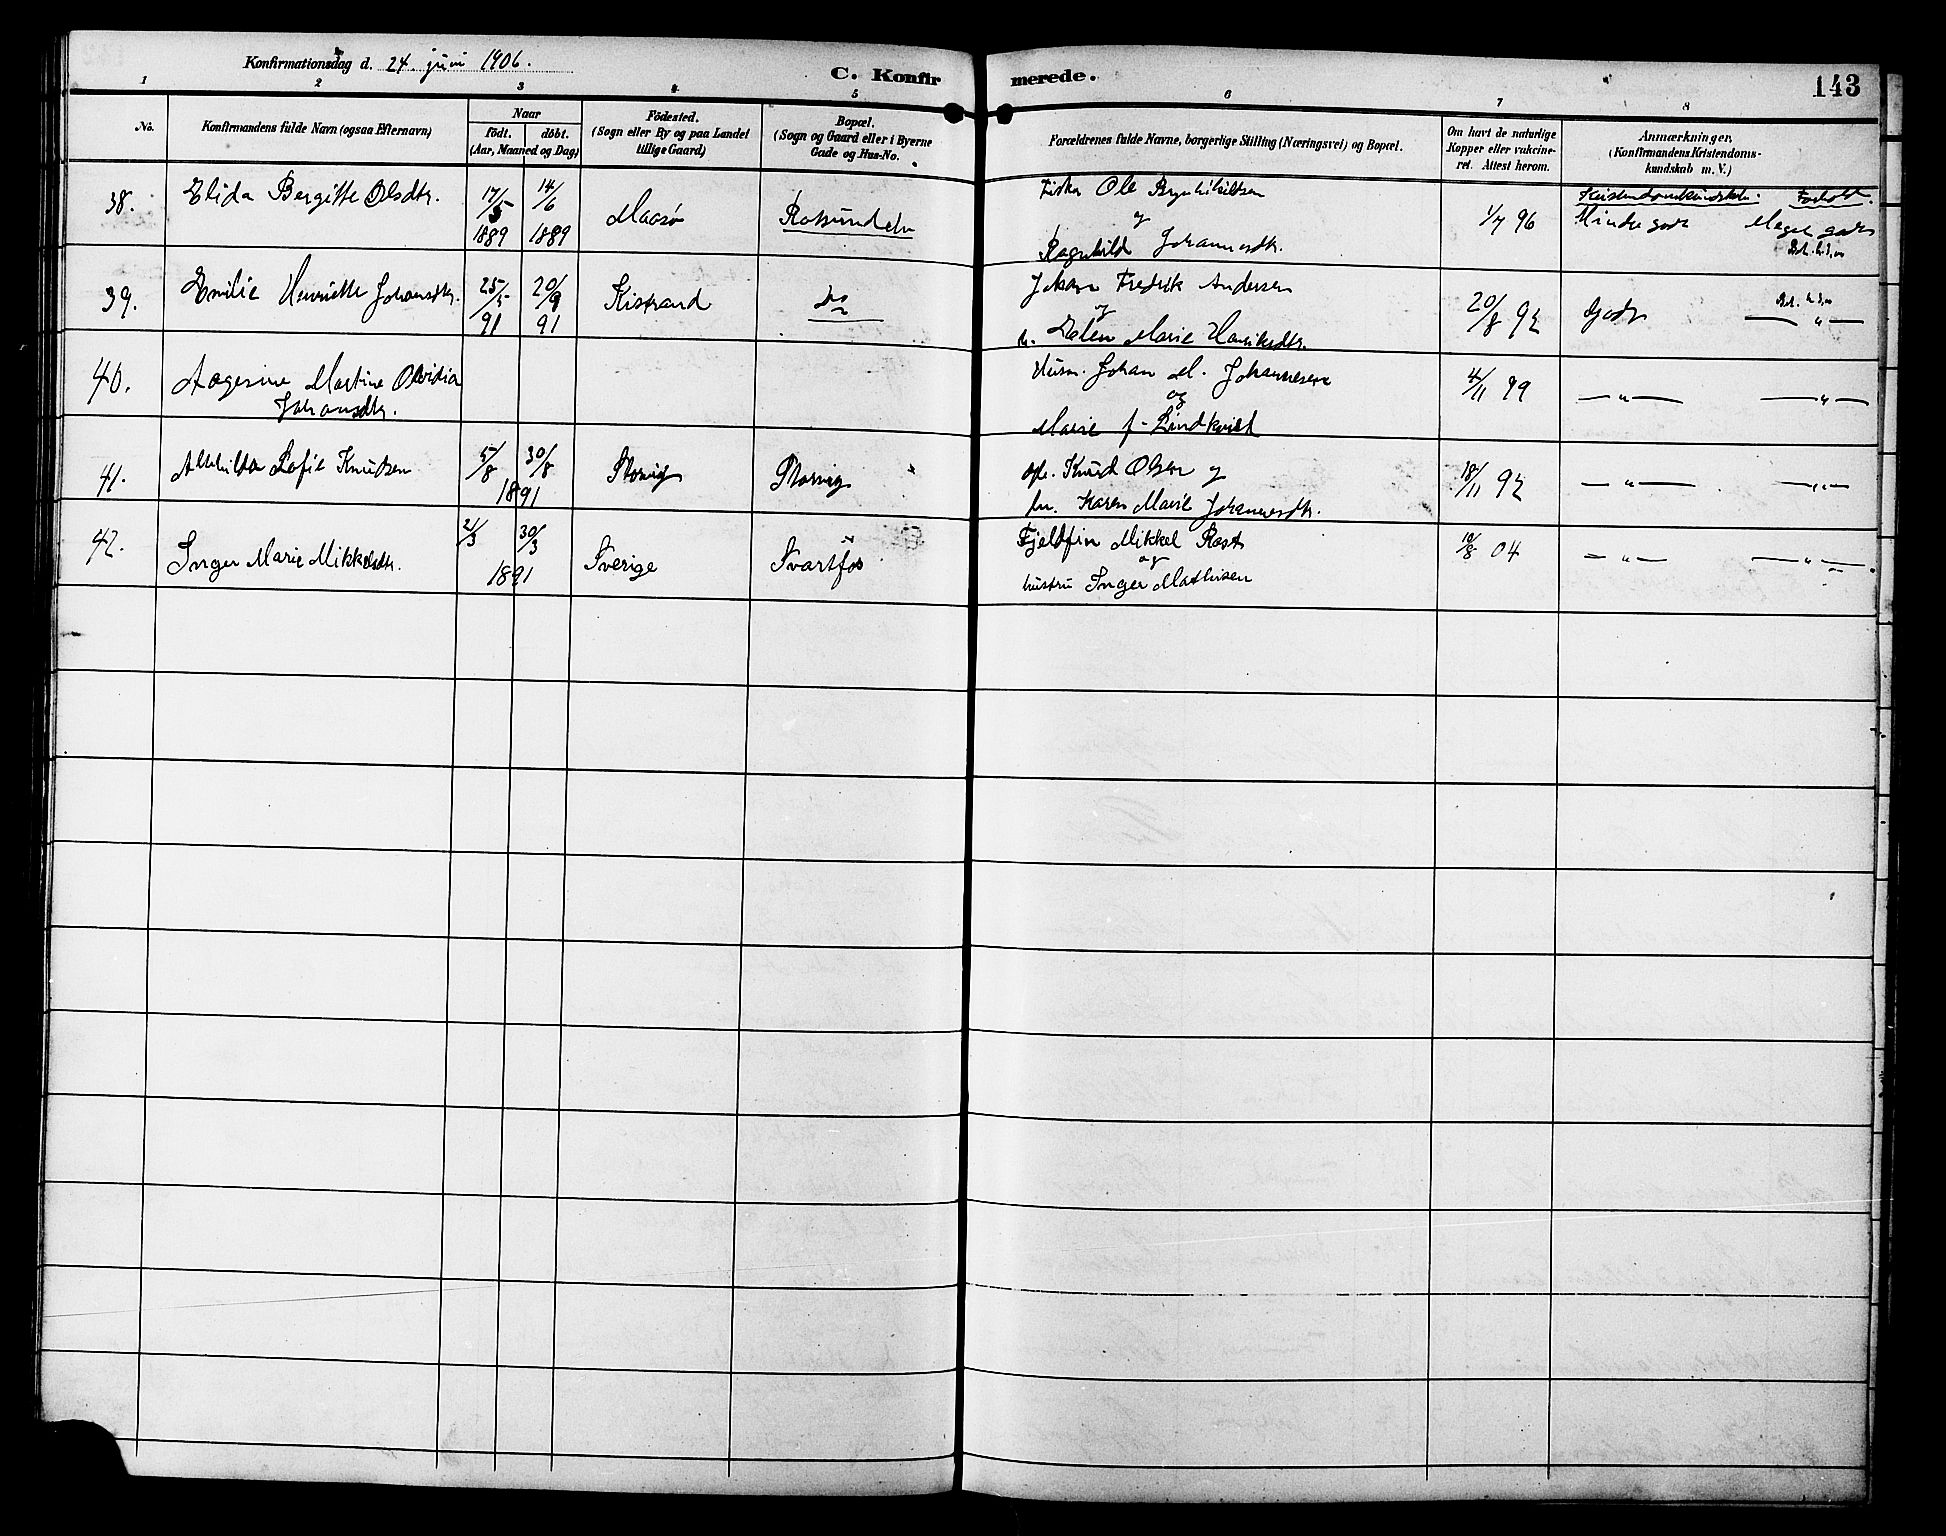 Konfirmationsdag d. 24. juni 1906.
C. Konfirmerede.
143
1 2 3 4 5 6 7 8
No.
Konfirmandens fulde Navn (ogsaa Efternavn)
Naar
födt. döbt.
(Aar, Maaned og Dag)
Födested.
(Sogn eller By og paa Landet
tillige Gaard)
Bopæl.
(Sogn og Gaard eller i Byerne
Gade og Hus-No.
Forældrenes fulde Navne, borgerlige Stilling (Næringsvei) og Bopæl.
Om havt de naturlige
Kopper eller vakcine-
ret. Attest herom.
Anmærkninger,
(Konfirmandens Kristendoms-
kundskab m. V.)
38. Elida Bergitte Olsdtr. 17/5 1889 14/6 1889 Maasø Ole 1/7 96 Mindre godt Meget godt
Ragnhild Johannesdtr.
39. Emilie Henriette Johansdtr. 25/5 91 20/9 91 Kistrand do Johan Fredrik Andersen 20/8 92 Godt — " —
og
h. Marie Henriksdtr.
40. Aagesine Martine Johansdtr. Johan M. Johannesen 4/11 99 — " — — " —
og
Marie f. Lindkvist
41. Sofie Knudsen 5/8 30/8 1891 Storvig Storvig Knud Olsen og 18/11 92 — " — — " —
hu. Karen Marie Johannesdtr.
42. Inger Marie Mikkelsdtr. 2/3 30/3 1891 Sverige Svartfos Fjeldfin Mikkel Rast 10/8 04 — " — — " —
og
hustru Inger Mathisen